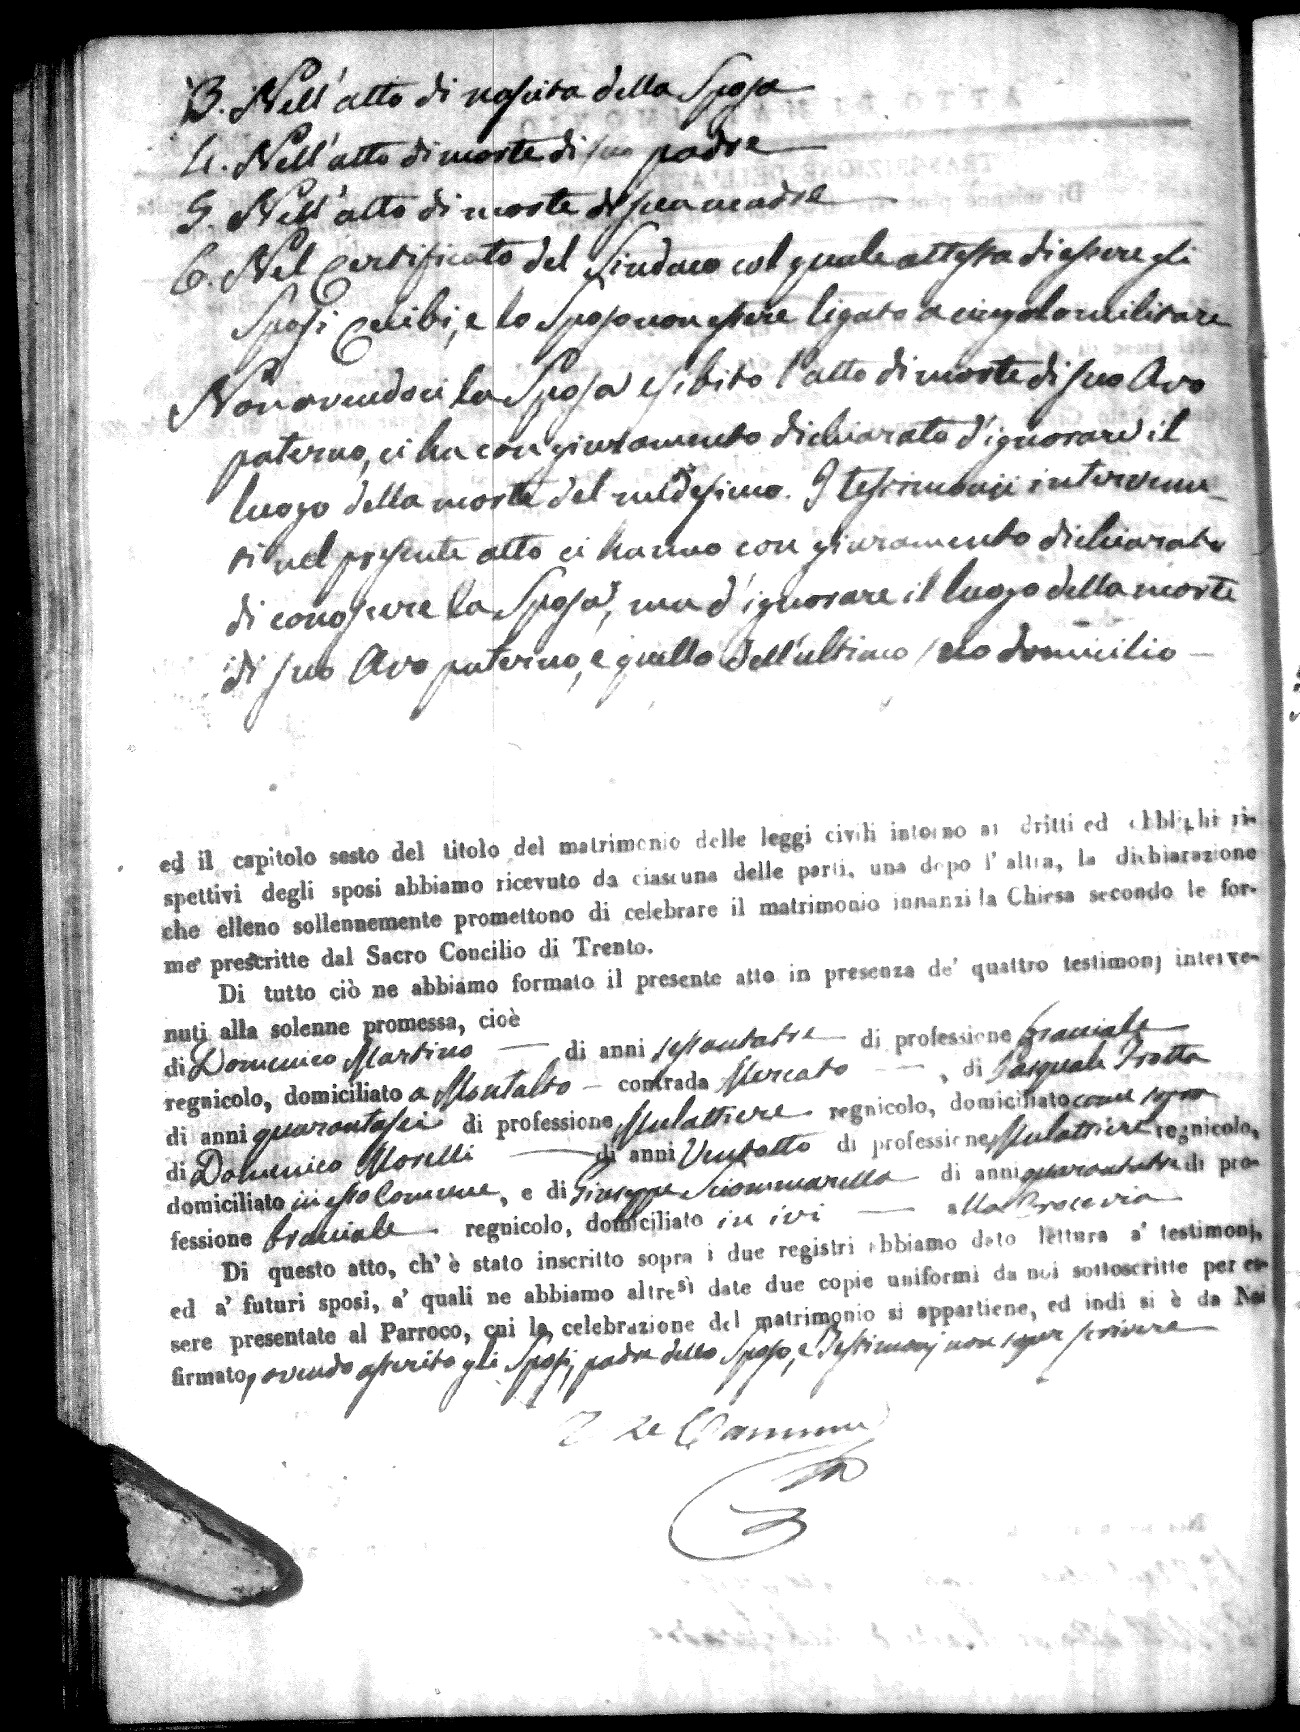 3. Nell'atto di nascita della Sposa
4. Nell'atto di morte di suo padre
5. Nell'atto di morte di sua madre
6. Nel Certificato del Sindaco col quale attesta di essere gli
Sposi Celibi, e lo Sposo non essere ligato a cingolo militare
Non avendoci la Sposa esibito l'atto di morte di suo Avo
paterno, ci ha con giuramento dichiarato d'ignorare il
luogo della morte del medesimo. I testimonii intervenu-
ti nel presente atto ci hanno con giuramento dichiarato
di conoscere la Sposa, ma d'ignorare il luogo della morte
di suo Avo paterno, e quello dell'ultimo suo domicilio —
ed il capitolo sesto del titolo del matrimonio delle leggi civili intorno ai dritti ed obblighi ri-
spettivi degli sposi abbiamo ricevuto da ciascuna delle parti, una dopo l'altra, la dichiarazione
che elleno sollennemente promettono di celebrare il matrimonio innanzi la Chiesa secondo le for-
me prescritte dal Sacro Concilio di Trento.
Di tutto ciò ne abbiamo formato il presente atto in presenza de' quattro testimonj interve-
nuti alla solenne promessa, cioè
di Domenico Martino — di anni sessantatre di professione bracciale
regnicolo, domiciliato a Montalto — contrada Mercato — , di Pasquale Trotta
di anni quarantasei di professione Mulattiere regnicolo, domiciliato come sopra
di Domenico Morelli — di anni Ventotto di professione Mulattiere regnicolo,
domiciliato in esso Comune, e di Giuseppe Sciommarella di anni quarantatre di pro-
fessione bracciale regnicolo, domiciliato in ivi — alla
Di questo atto, ch'è stato inscritto sopra i due registri abbiamo dato lettura a' testimonj,
ed a' futuri sposi, a' quali ne abbiamo altresì date due copie uniformi da noi sottoscritte per es-
sere presentate al Parroco, cui la celebrazione del matrimonio si appartiene, ed indi si è da Noi
firmato, avendo asserito gli Sposi, padre dello Sposo, e Testimonj non saper scrivere